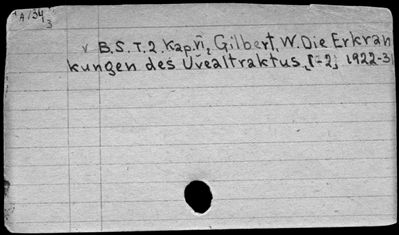 A/34
3
v B.S.T.2. Kap.VI, Gilbert, W. Die Erkran
kungen des Uvealtraktus, [1-2] 1922-3